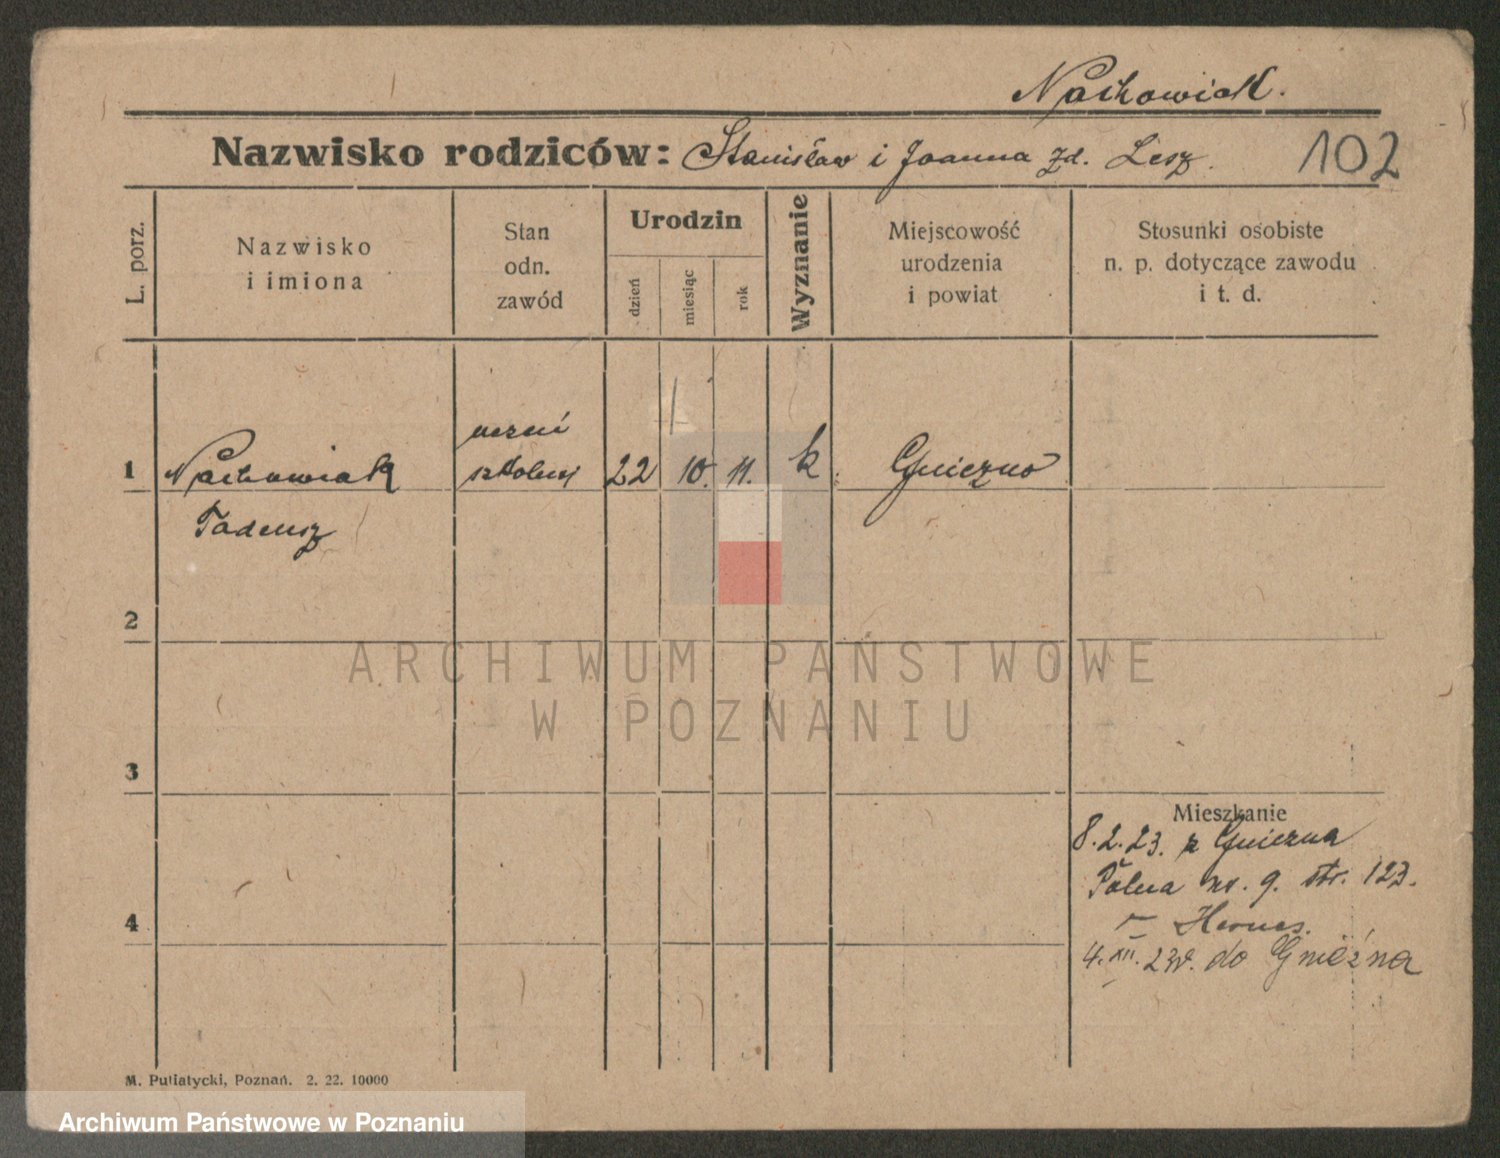 Nachowiak.
Nazwisko rodziców: Stanisław i Joanna zd. Lesz.
102
L. porz.
Nazwisko
i imiona
Stan
odn.
zawód
Urodzin
dzień
miesiąc
rok
Wyznanie
Miejscowość
urodzenia
i powiat
Stosunki osobiste
n. p. dotyczące zawodu
i t. d.
1 Nachowiak
Tadeusz
uczeń
szkolny
22 10. 11. k. Gniezno
2
3
4
ARCHIWUM PAŃSTWOWE
W POZNANIU
Mieszkanie
8.2.23. z Gniezna
Polna nr. 9. str. 123.
4.XII.23r. do Gniezna
M. Putiatycki, Poznań. 2. 22. 10000
Archiwum Państwowe w Poznaniu